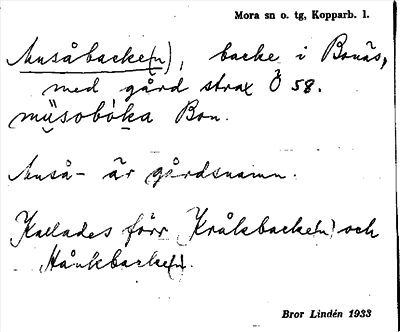 Mora sn o. tg, Kopparb. l.
Musåbacke(n), backe i Bonäs,
med gård strax Ö 58.
müsobòka Bon.
Muså- är gårdsnamn.
Kallades förr Kråkbacke(n) och
Hånkbacke(n).
Bror Lindén 1933